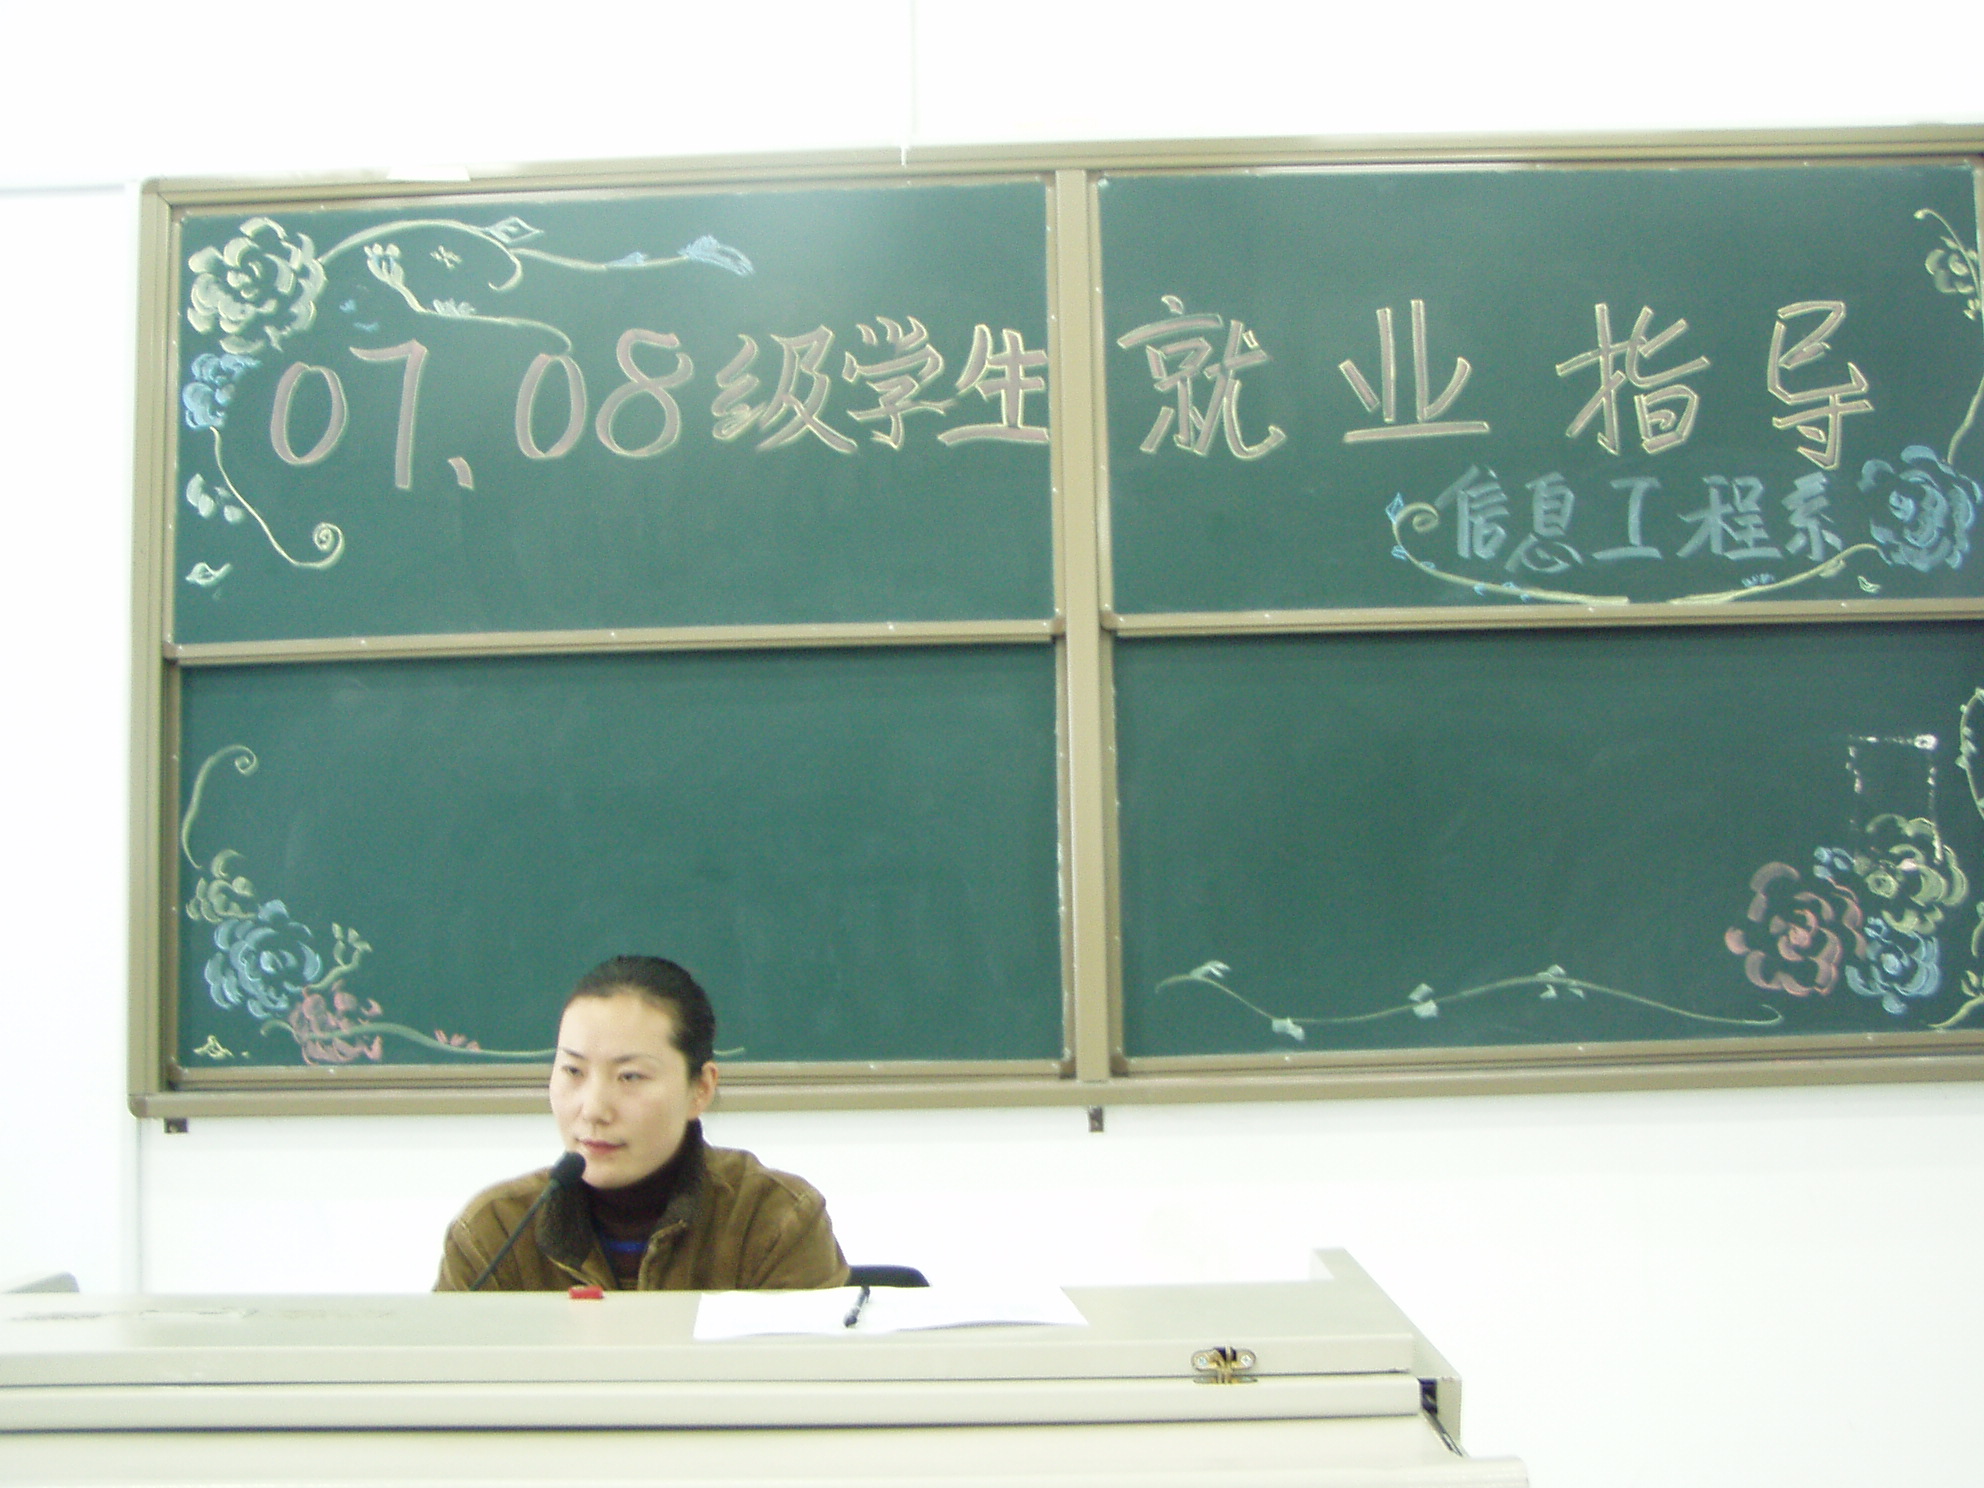 07、08级学生就业指导
信息工程系